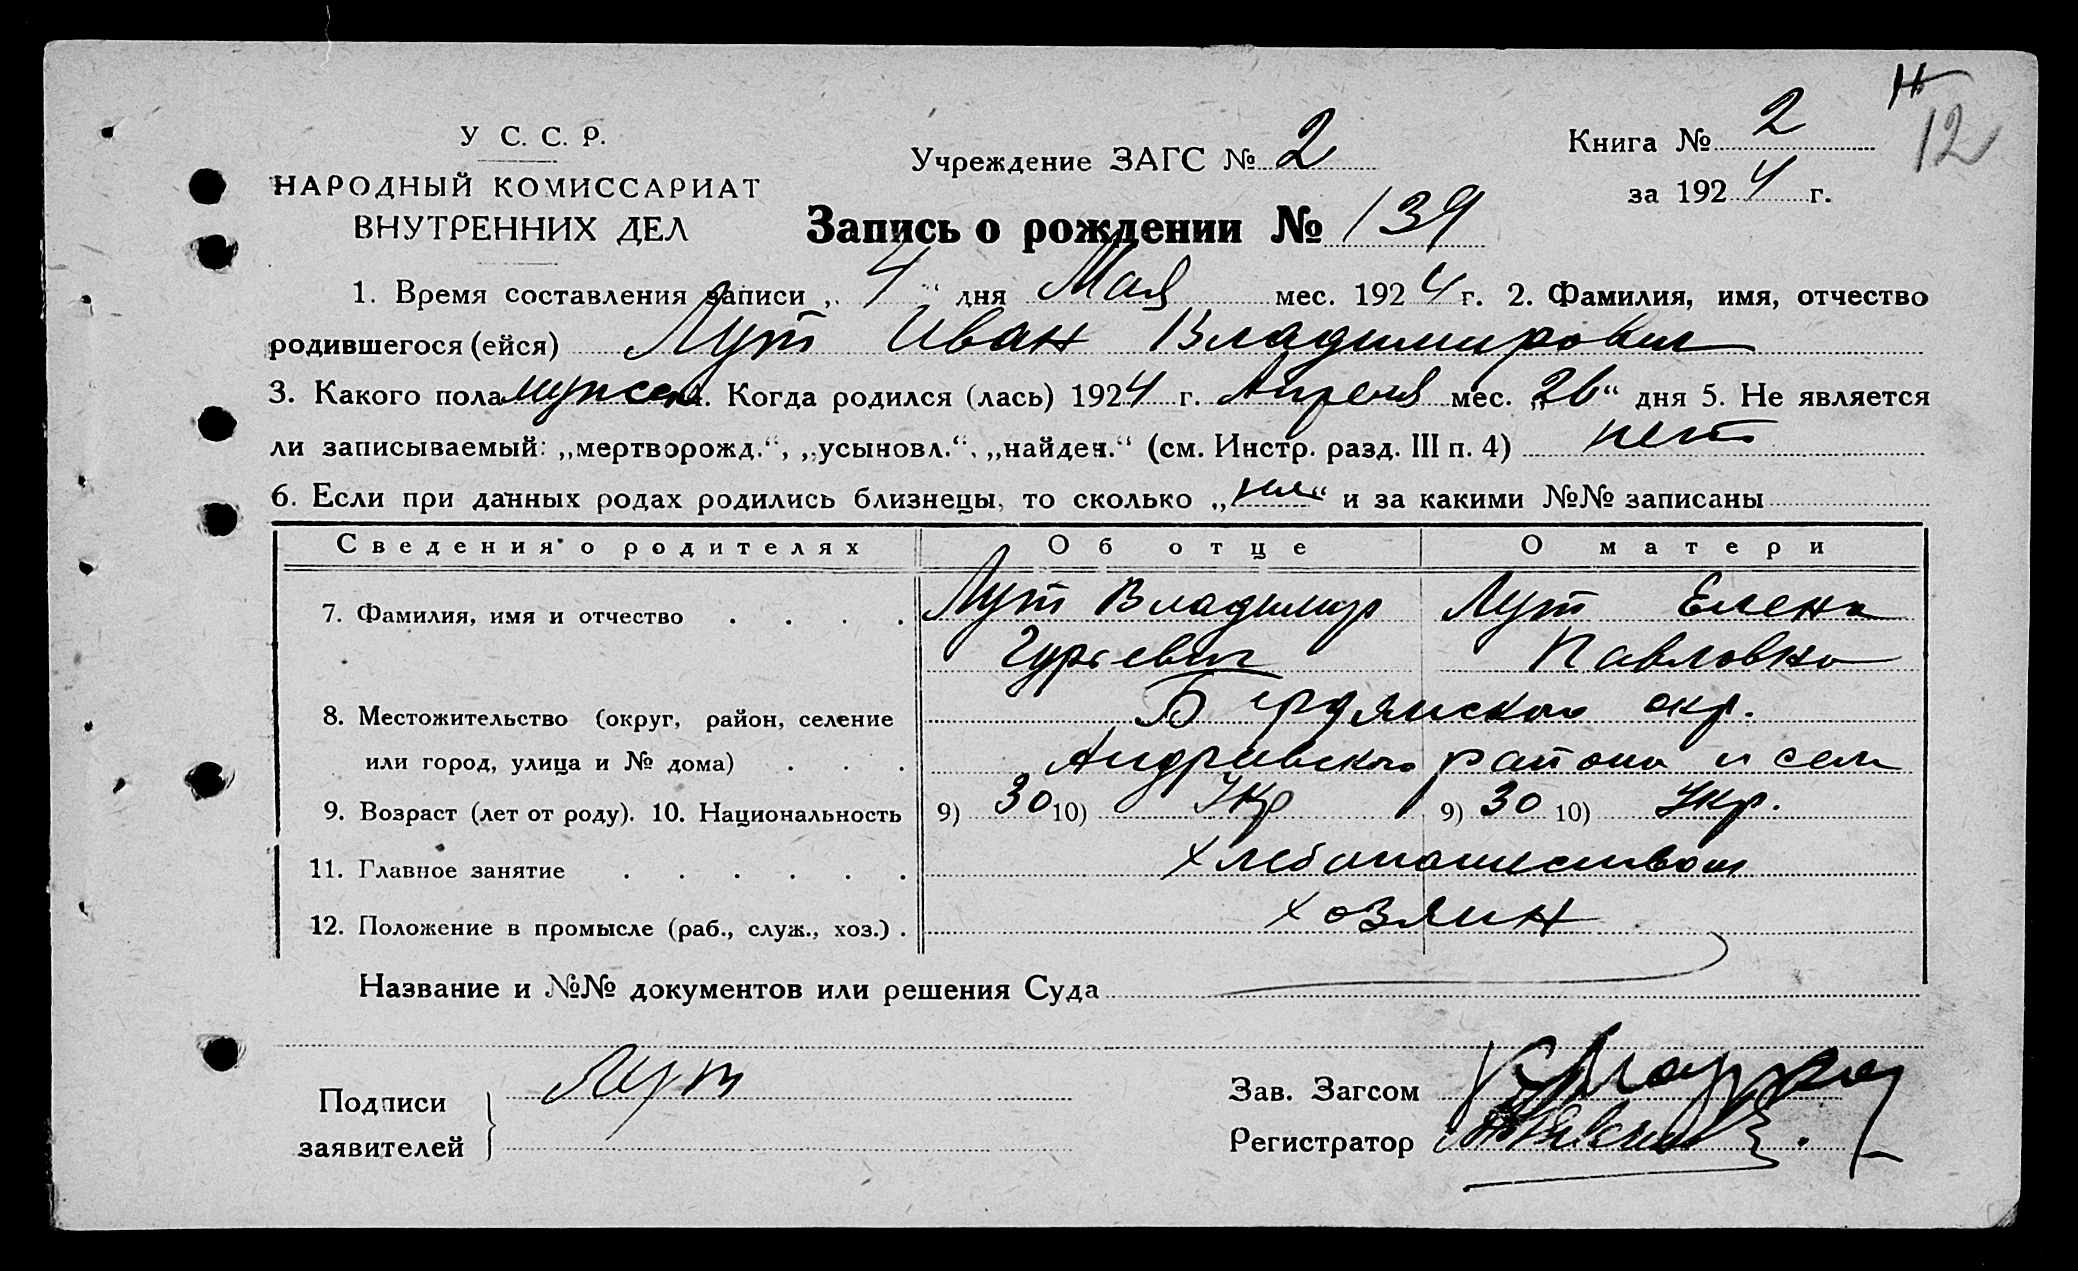 12
У С. С. Р.
НАРОДНЫЙ КОМИССАРИАТ
ВНУТРЕННИХ ДЕЛ
Учреждение ЗАГС № 2
Книга № 2
за 1924 г.
Запись о рождении № 139
1. Время составления записи „ 4 “ дня Мая мес. 1924 г. 2. Фамилия, имя, отчество
родившегося (ейся) Лут Иван Владимирович
3. Какого пола мужск 4. Когда родился (лась) 1924 г. Апреля мес. „26“ дня 5. Не является
ли записываемый: „мертворожд.“, „усыновл.“, „найден.“ (см. Инстр. разд. III п. 4) нет
6. Если при данных родах родились близнецы, то сколько „ “ и за какими №№ записаны
Сведения о родителях Об отце О матери
7. Фамилия, имя и отчество . . . . Лут Владимир Лут Елена
Гурьевич Павловна
8. Местожительство (округ, район, селение Бердянского окр.
или город, улица и № дома) . . . района и села
9. Возраст (лет от роду). 10. Национальность 9) 30 10) Укр 9) 30 10) Укр.
11. Главное занятие . . . . . . Хлебопашеством
12. Положение в промысле (раб., служ., хоз.) . хозяин
Название и №№ документов или решения Суда
Подписи
заявителей Лут
Зав. Загсом
Регистратор